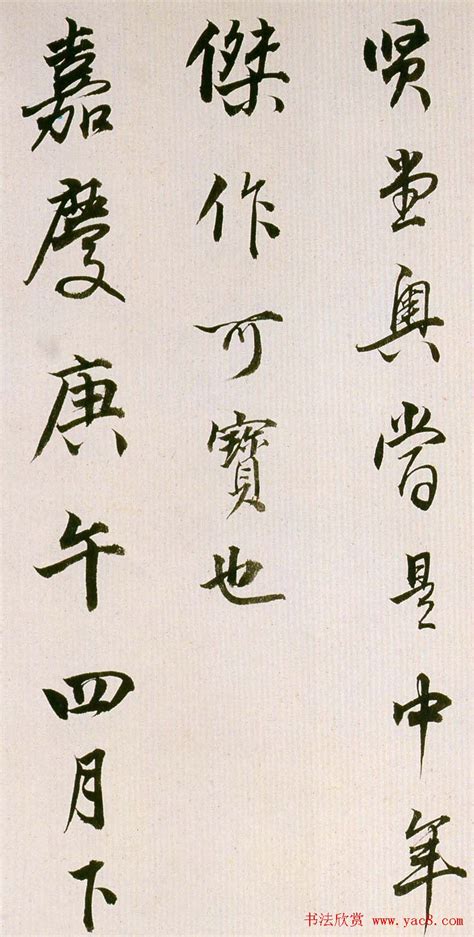 贤堂奥當是中年
傑作可寶也
嘉慶庚午四月下
书法欣赏 www.yac8.com